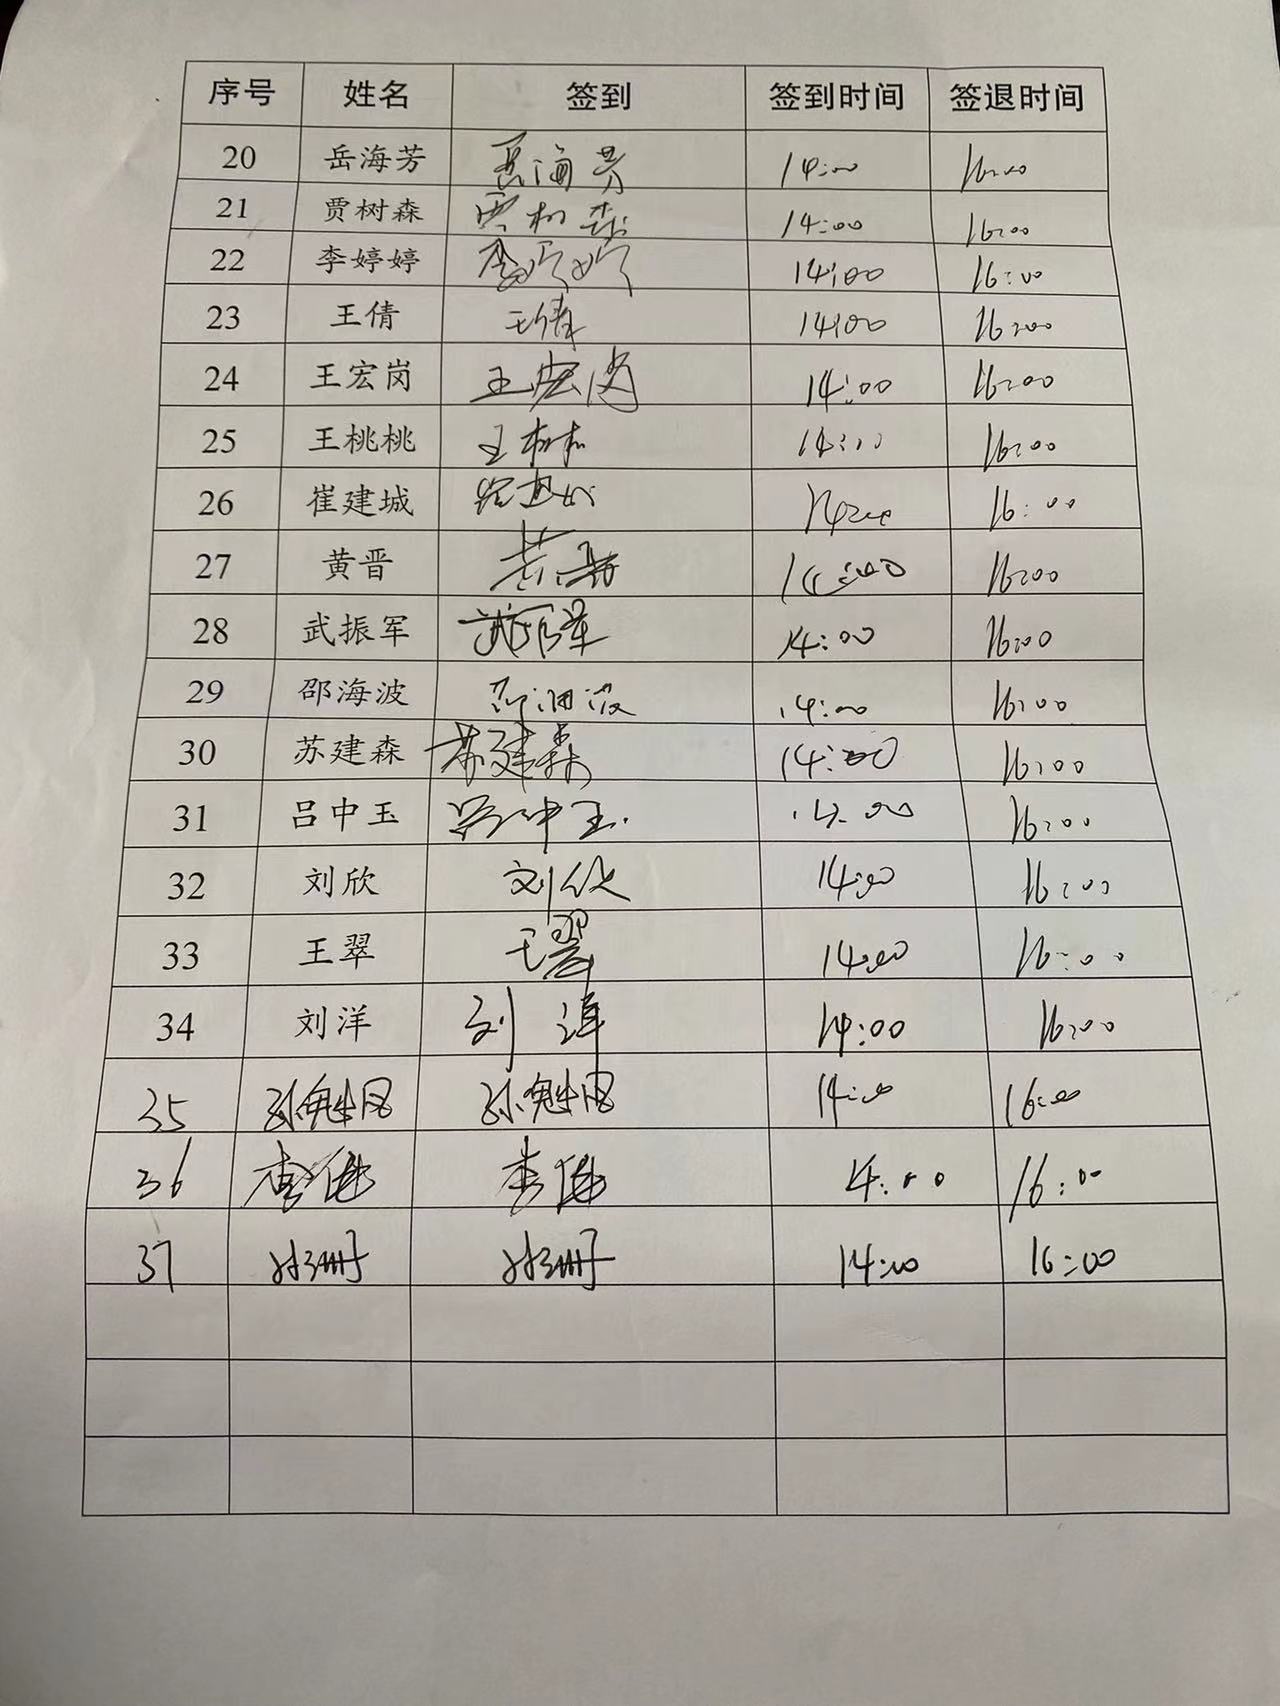 序号 姓名 签到 签到时间 签退时间
20 岳海芳 岳海芳 14:00 16:00
21 贾树森 贾树森 14:00 16:00
22 李婷婷 李婷婷 14:00 16:00
23 王倩 王倩 14:00 16:00
24 王宏岗 王宏岗 14:00 16:00
25 王桃桃 王桃桃 14:00 16:00
26 崔建城 崔建城 14:00 16:00
27 黄晋 黄晋 14:00 16:00
28 武振军 武振军 14:00 16:00
29 邵海波 邵海波 14:00 16:00
30 苏建森 苏建森 14:00 16:00
31 吕中玉 吕中玉 14:00 16:00
32 刘欣 刘欣 14:00 16:00
33 王翠 王翠 14:00 16:00
34 刘洋 刘洋 14:00 16:00
35 14:00 16:00
36 14:00 16:00
37 14:00 16:00